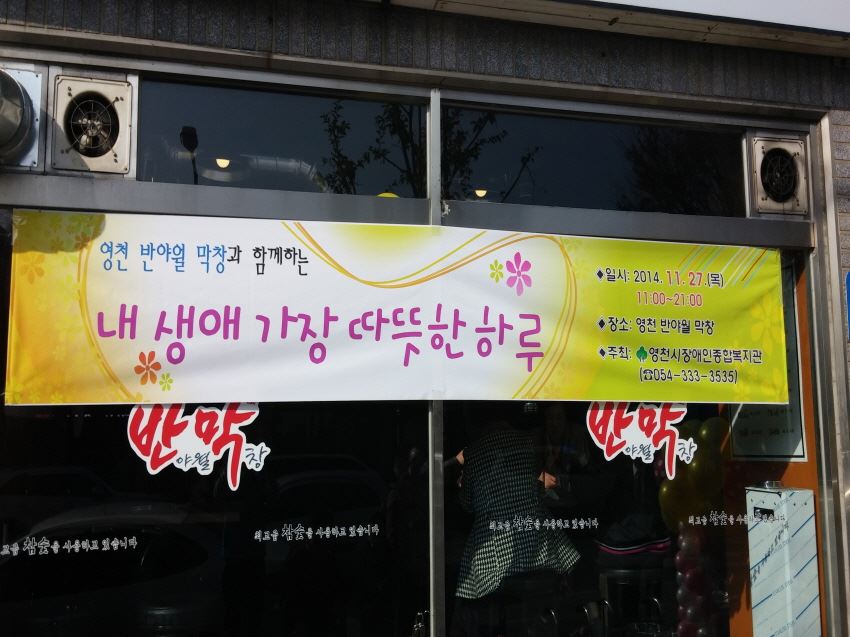 영천 반야월 막창과 함께하는
내 생애 가장 따뜻한 하루
◆일시: 2014. 11. 27.(목)
11:00~21:00
◆장소: 영천 반야월 막창
◆주최: 영천시장애인종합복지관
(☎054-333-3535)
반야월막창
반야월막창
최고급 참숯을 사용하고 있습니다
최고급 참숯을 사용하고 있습니다
고급 참숯을 사용하고 있습니다
최고급 참숯을